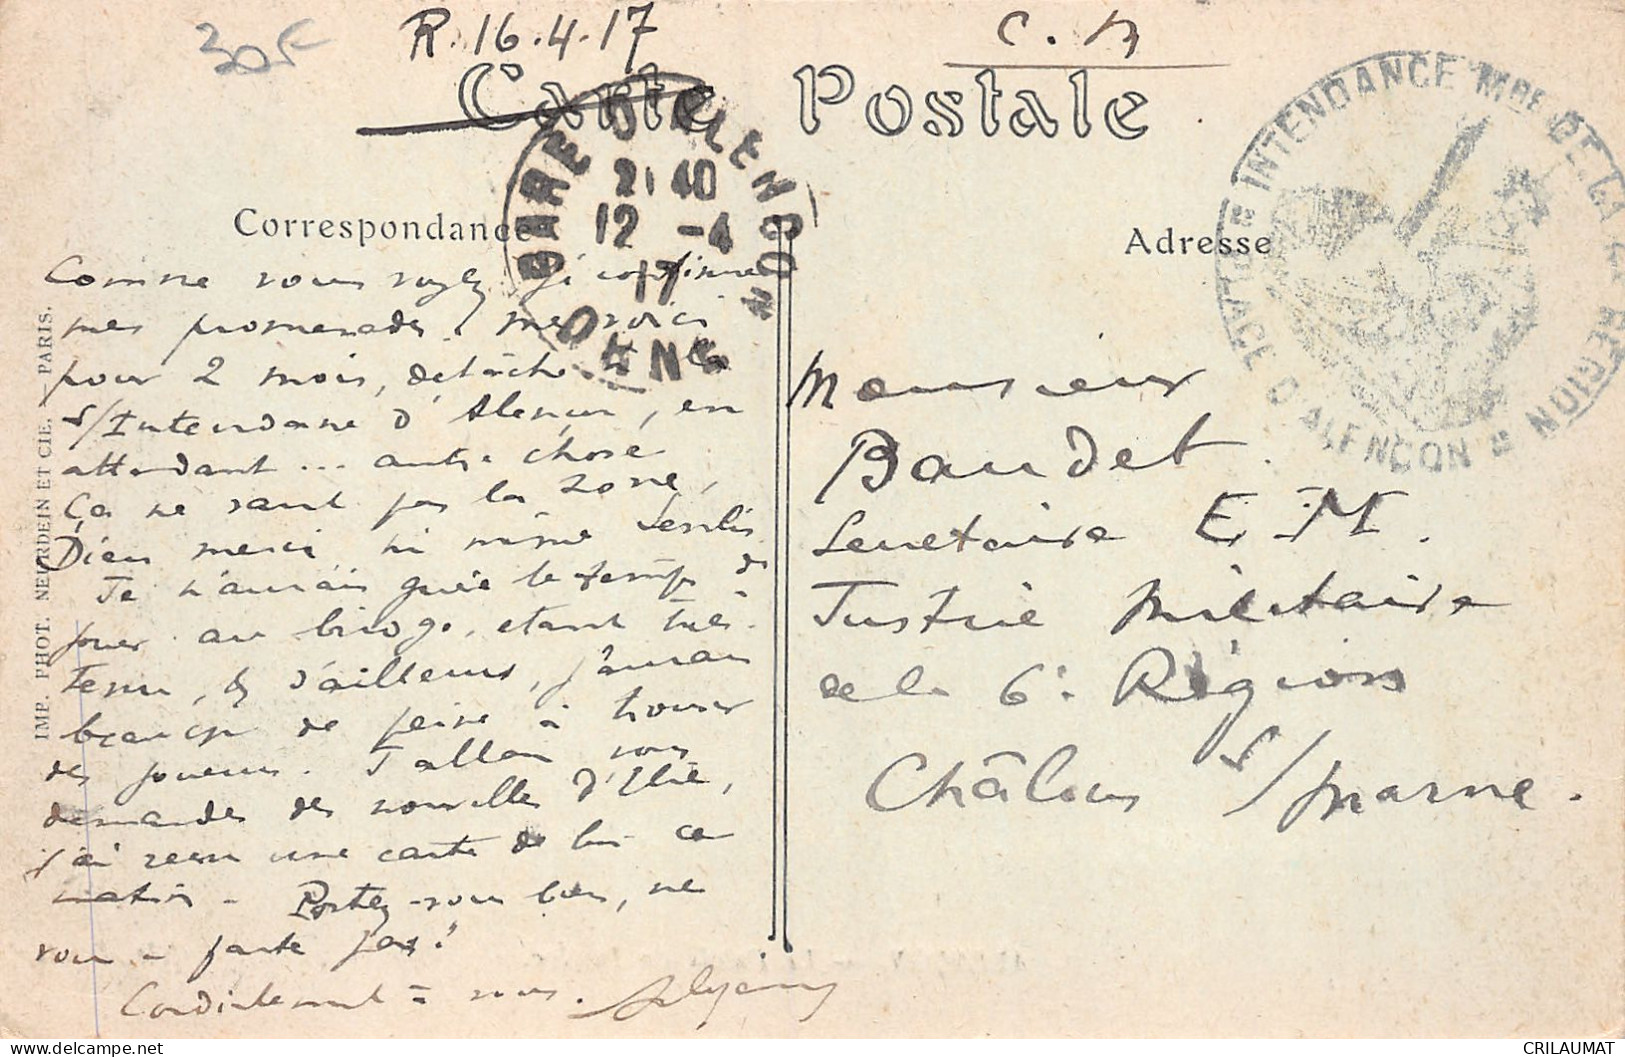 30F
R. 16.4.17
C. A
Carte Postale
GARE D'ALENÇON
21 40
12 -4
17
ORNE
INTENDANCE MRE DE LA 4E REGION
PLACE D'ALENÇON
Correspondance
Adresse
Comme vous voyez, j'ai continué
mes promenades. me voici
pour 2 mois, détaché à la
s/Intendance d'Alençon, en
attendant ... autre chose
Ça ne vaut pas la zone,
Dieu merci ni même Senlis
Je n'aurais guère le temps de
jouer au bridge, étant très
tenu, & d'ailleurs, j'aurais
beaucoup de peine à trouver
des joueurs. J'allais vous
demander des nouvelles d'Elie,
j'ai reçu une carte de lui ce
matin - Portez-vous bien, ne
vous - faites pas!
Cordialement à vous.
Monsieur
Baudet
Secretaire E. M.
Justice Militaire
de la 6e Région
Châlons s/marne.
IMP. PHOT. NEURDEIN ET CIE. — PARIS.
CRILAUMAT